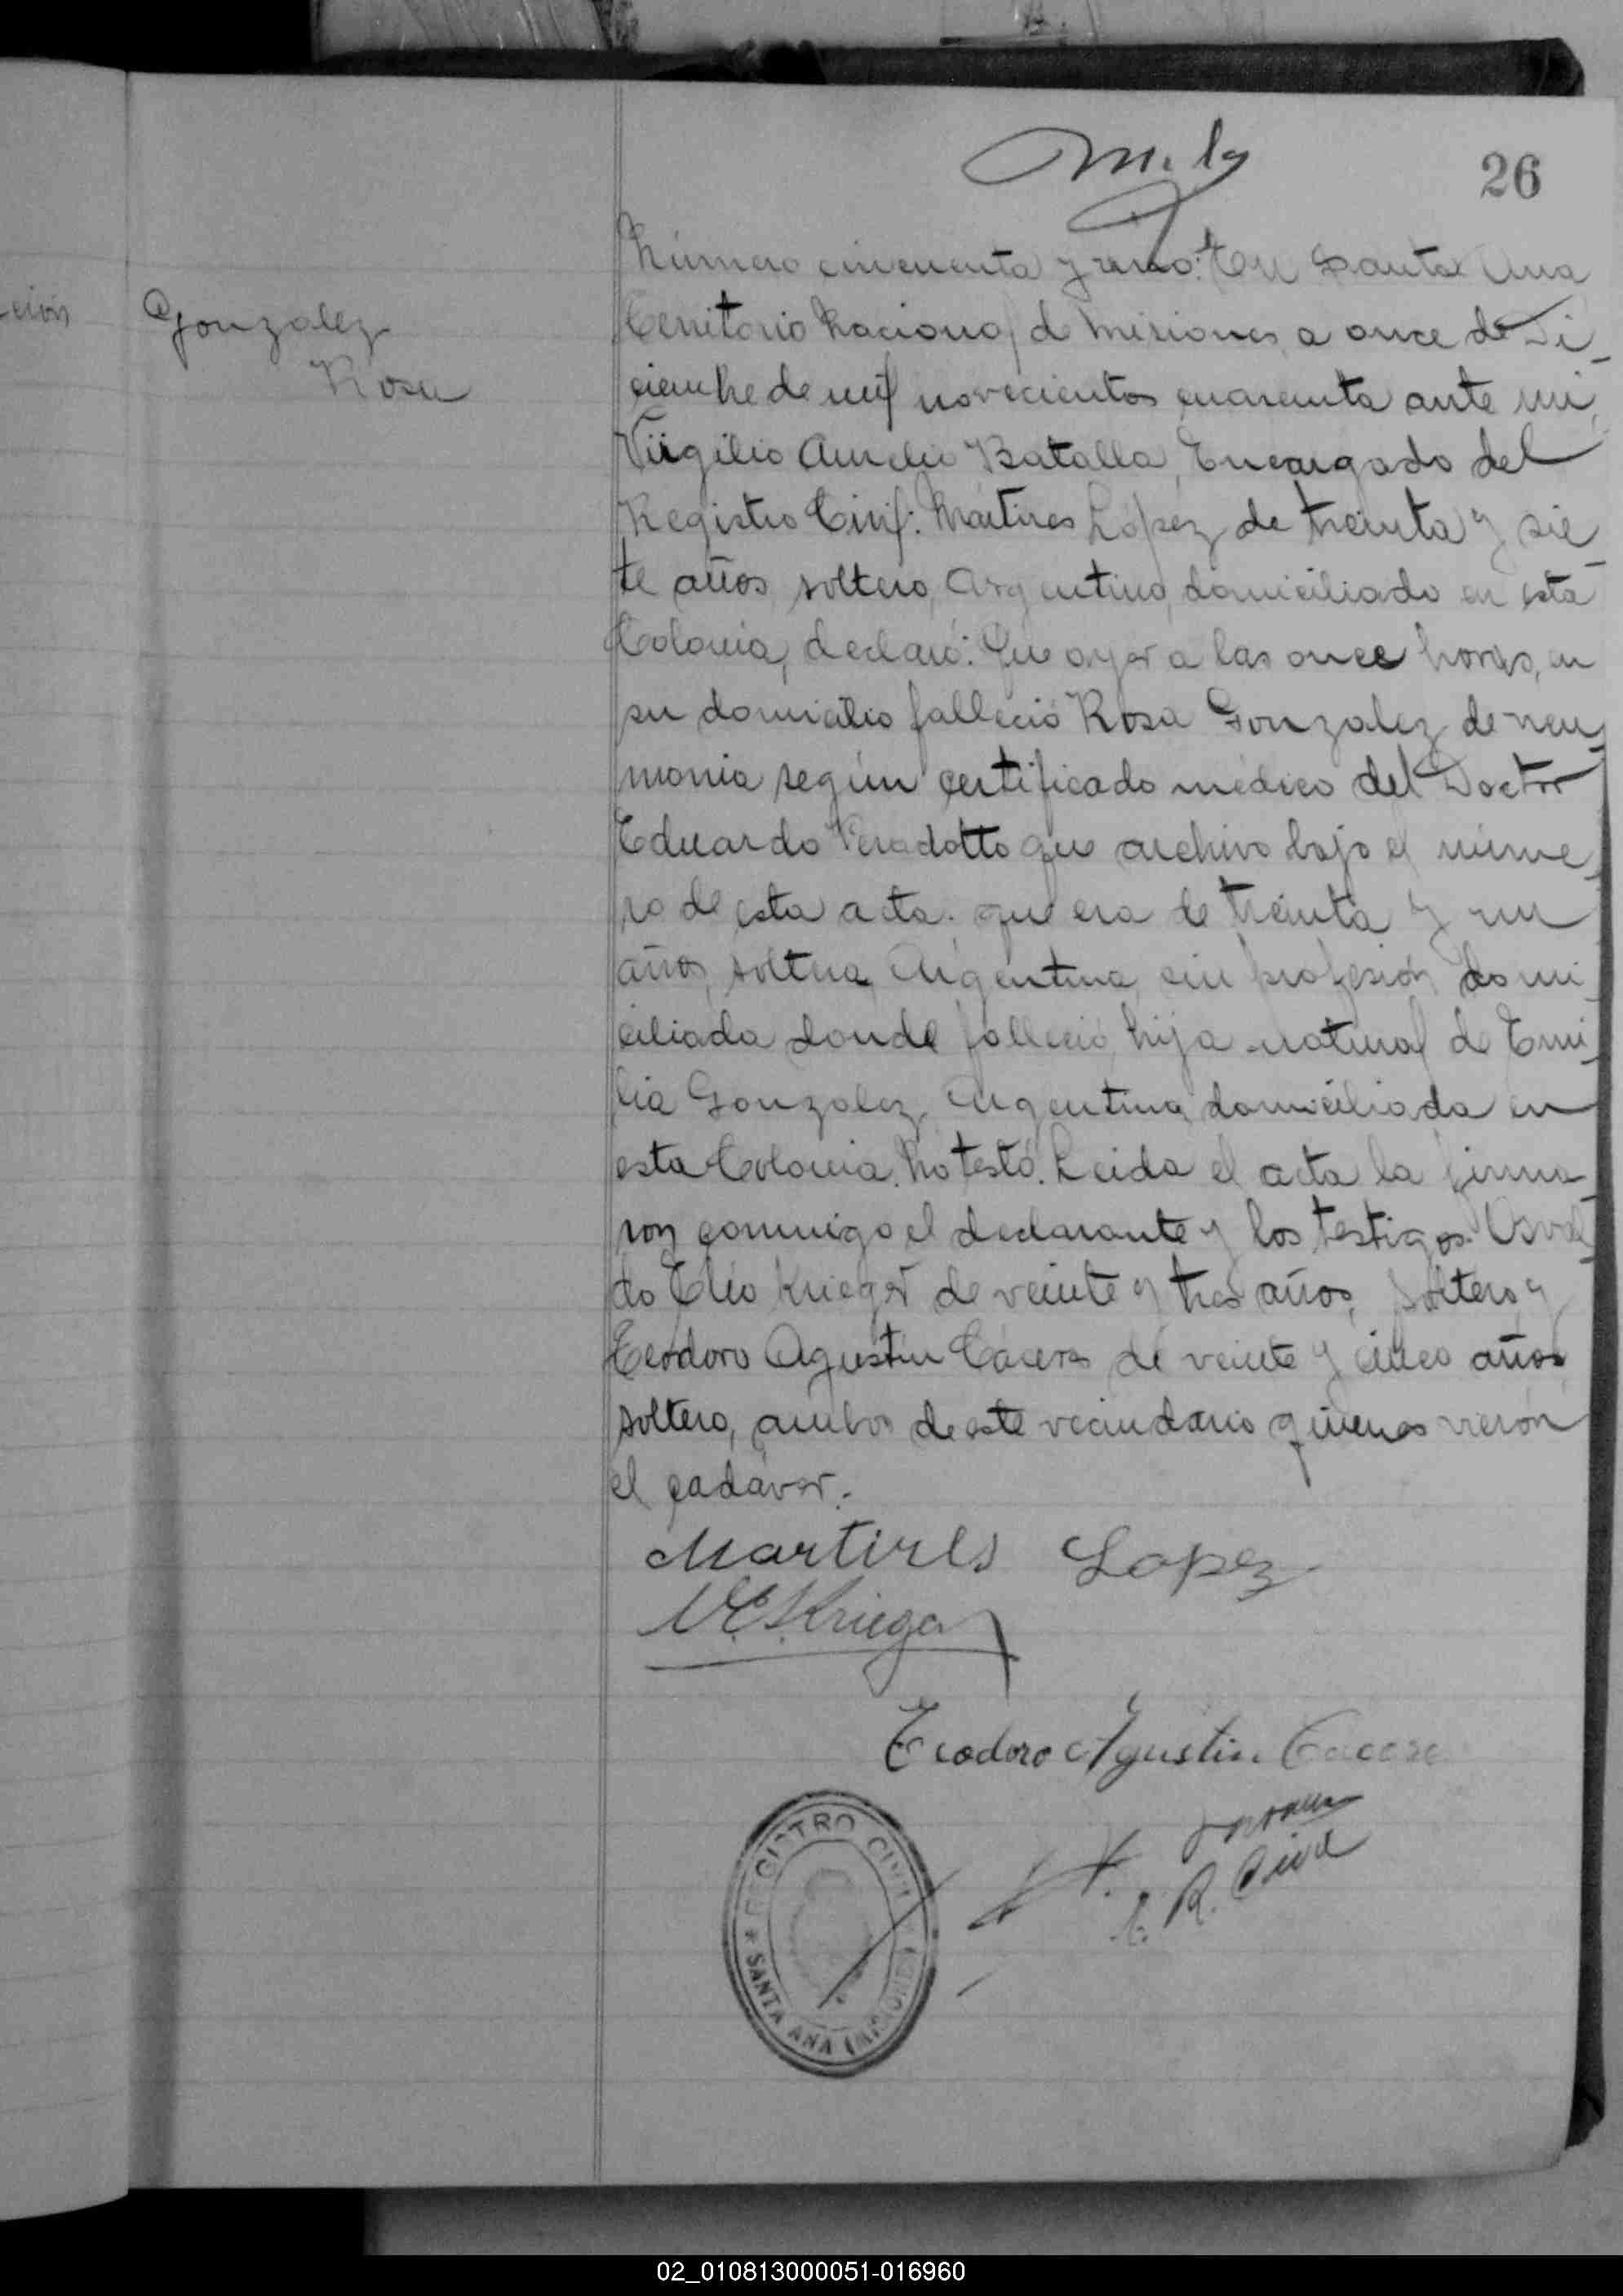 26
Número cincuenta y uno: En Santa Ana
Territorio Nacional de Misiones, a once de Di-
ciembre de mil novecientos cuarenta ante mi,
Virgilio Aurelio Batalla, Encargado del
Registro Civil: Mártires López, de treinta y sie-
te años, soltero, Argentino, domiciliado en esta
Colonia, declaró: Que ayer a las once horas, en
su domicilio falleció Rosa Gonzalez, de neu-
monia según certificado médico del Doctor
Eduardo que archivo bajo el núme-
ro de esta acta; que era de treinta y un
años, soltera, Argentina, sin profesión, domi-
ciliada donde falleció, hija natural de Emi-
lia Gonzalez, Argentina, domiciliada en
esta Colonia. No testó. Leida el acta la firma-
ron conmigo el declarante y los testigos: Osval-
do Elio Krieger de veinte y tres años, soltero, y
Teodoro Agustín Cáceres de veinte y cinco años,
soltero, ambos de este vecindario quienes vierón
el cadáver.
Gonzalez
Rosa
ción
Martires Lopez
Krieger
Teodoro Agustin Cacere
R. Civil
REGISTRO CIVIL
* SANTA ANA (MISIONES)
02_010813000051-016960